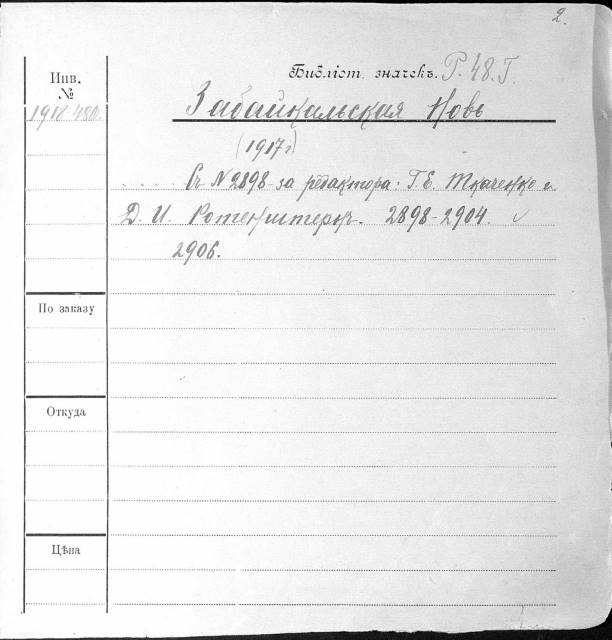 2.
Инв.
№
Библіот. значекъ. Р. 48. Г.
Забайкальская Новь
(1917 г)
Съ № 2898 за редактора: Г. Е. Ткаченко и
Д. И. Ротенштернъ. 2898-2904. ✓
2906.
По заказу
Откуда
Цѣна